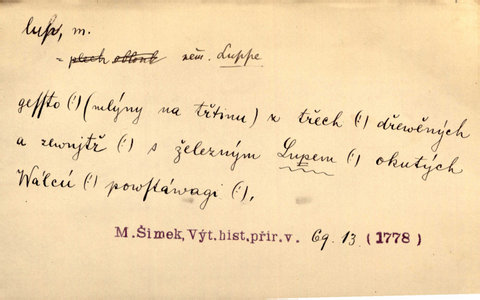 lup, m.
= plech oblouk něm. Luppe
gessto (!) (mlýny na třtinu) z třech (!) dřewěných
a zewnjtř (!) s železným Lupem (!) okutých
Wálců (!) powstáwagi (!).
M. Šimek, Výt. hist. přir. v. 69. 13 (1778)